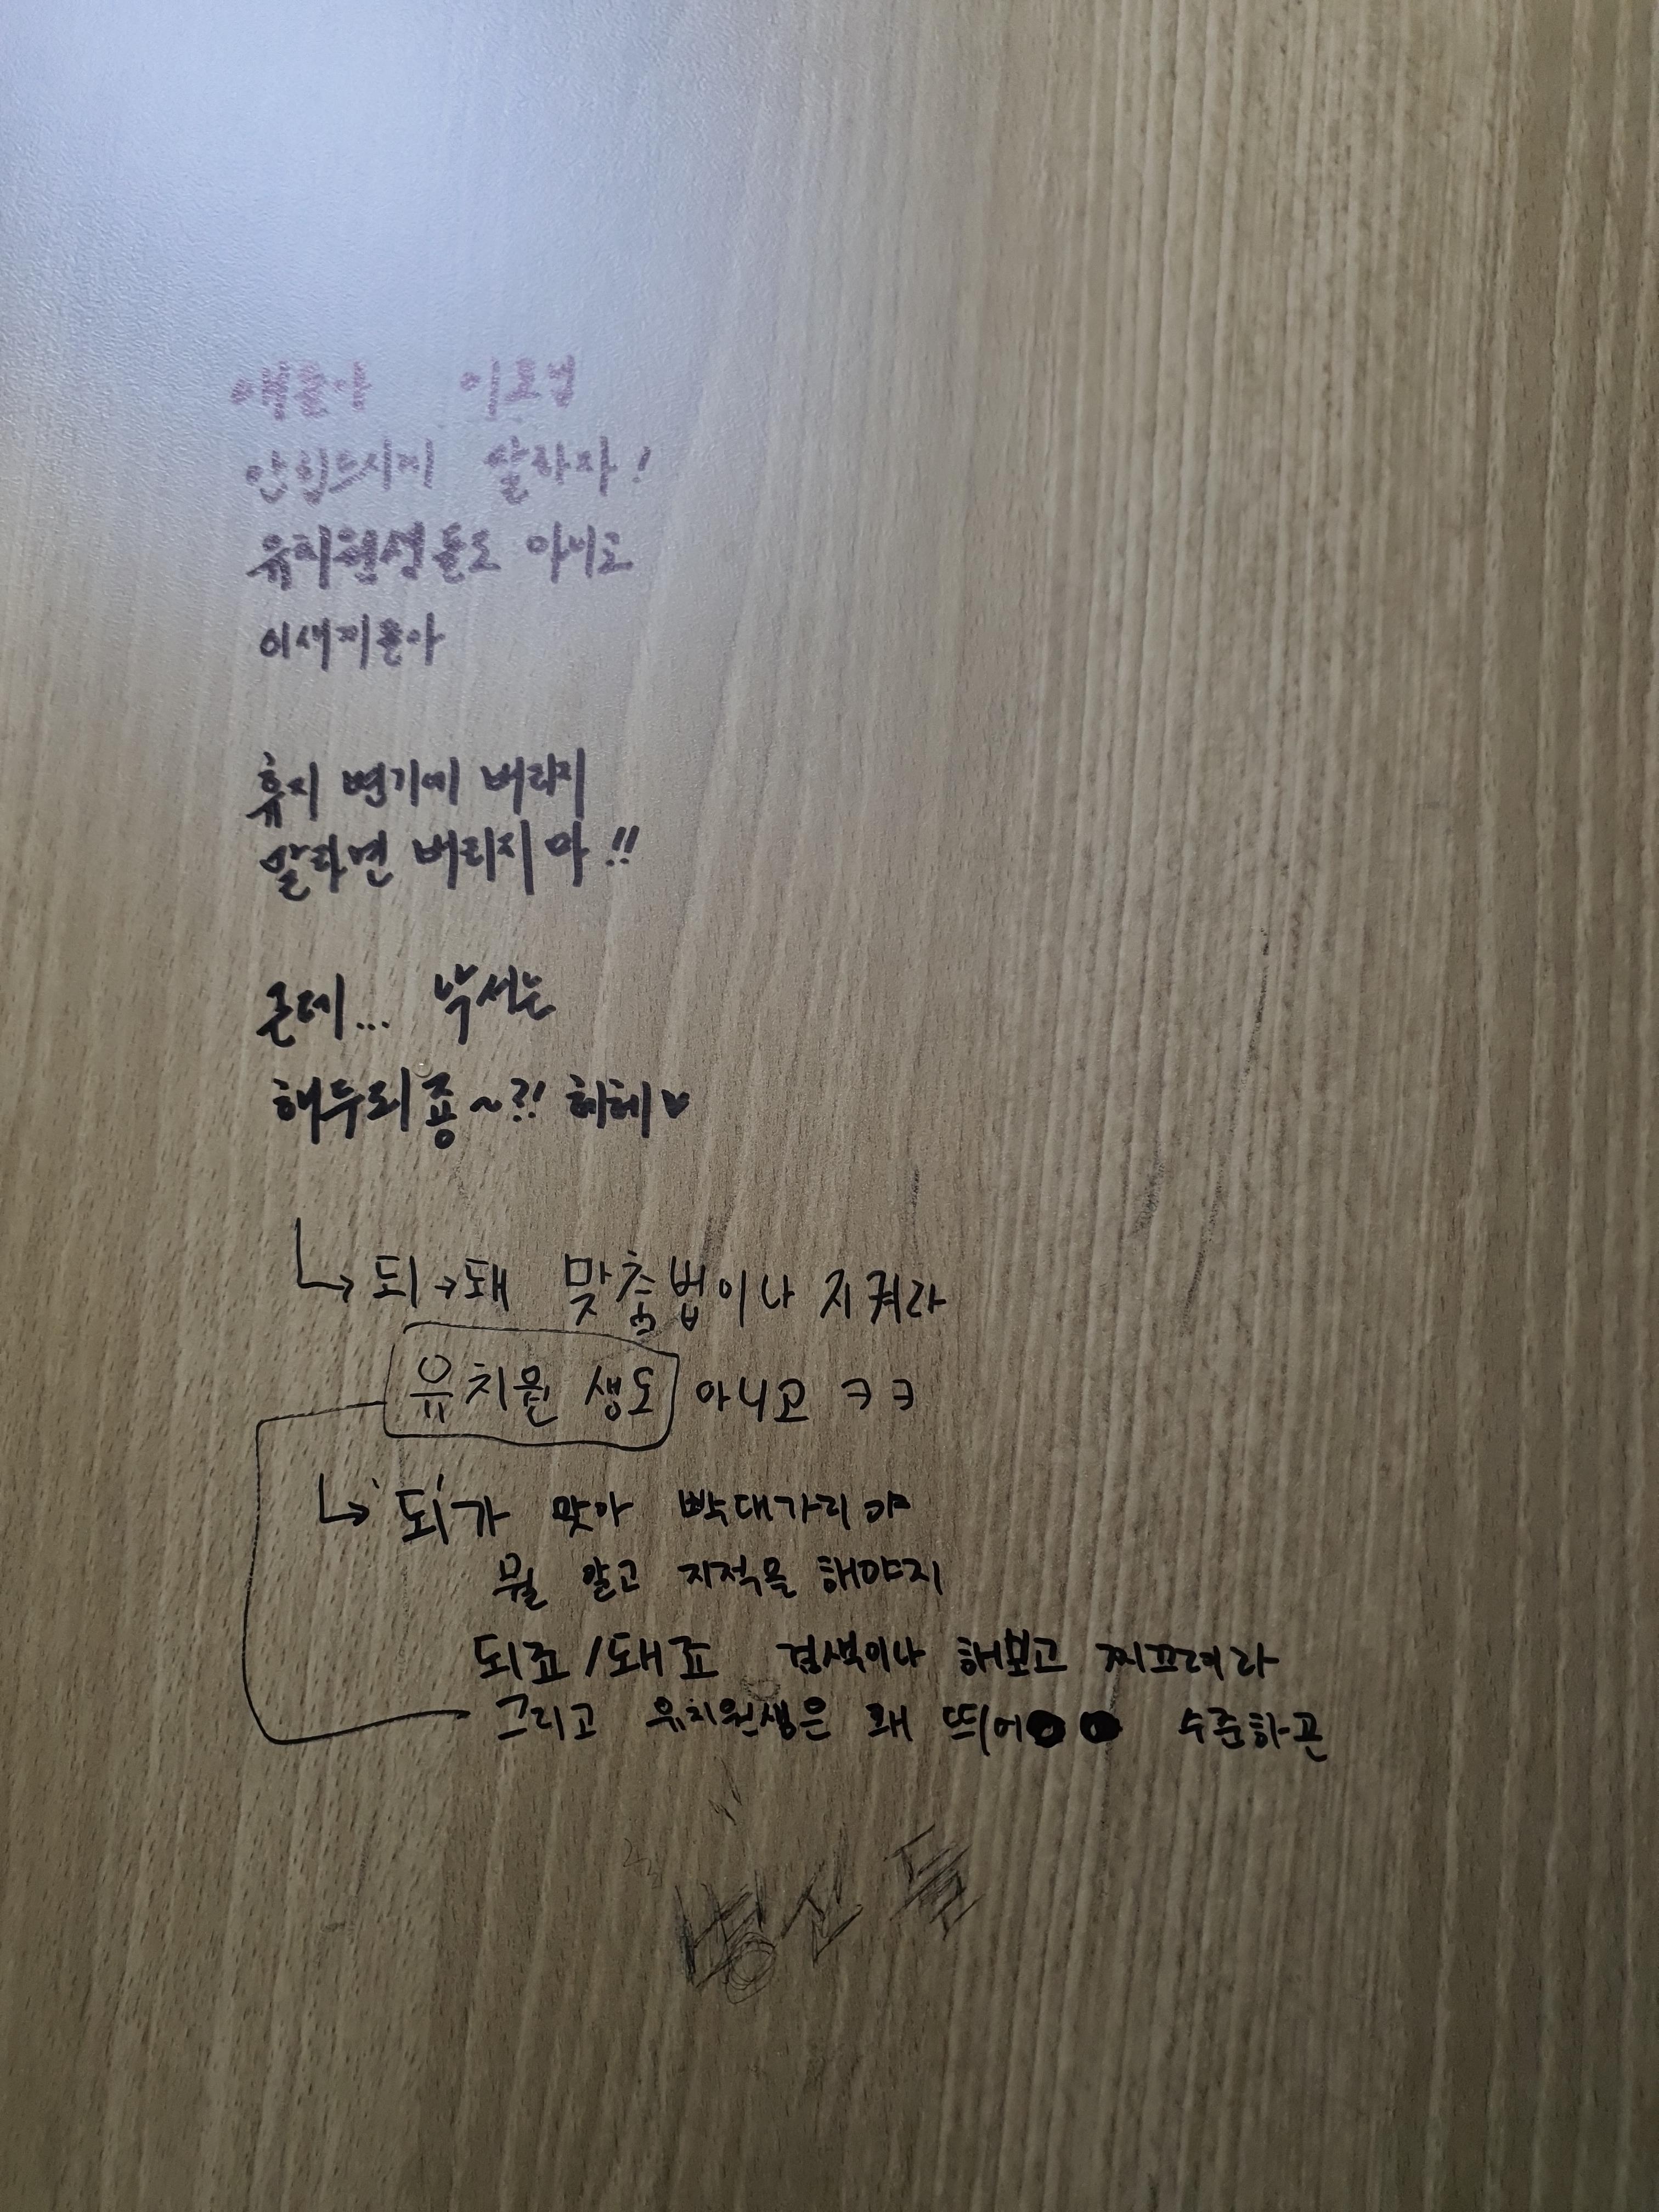 얘들아
안 힘드시게 살라자!
유치원생들도 아니고
이새끼들아
휴지 변기에 버리지
말라면 버리지 마!!
근데... 낙서는
해두되죵~?! 헤헤♥
↳ 되→돼 맞춤법이나 지켜라
유치원 생도 아니고 ㅋㅋ
↳ '되'가 맞아 빡대가리야
뭘 알고 지적을 해야지
되죠/돼죠 검색이나 해보고 찌끄려라
그리고 유치원생은 왜 띄어 수준하곤
병신들